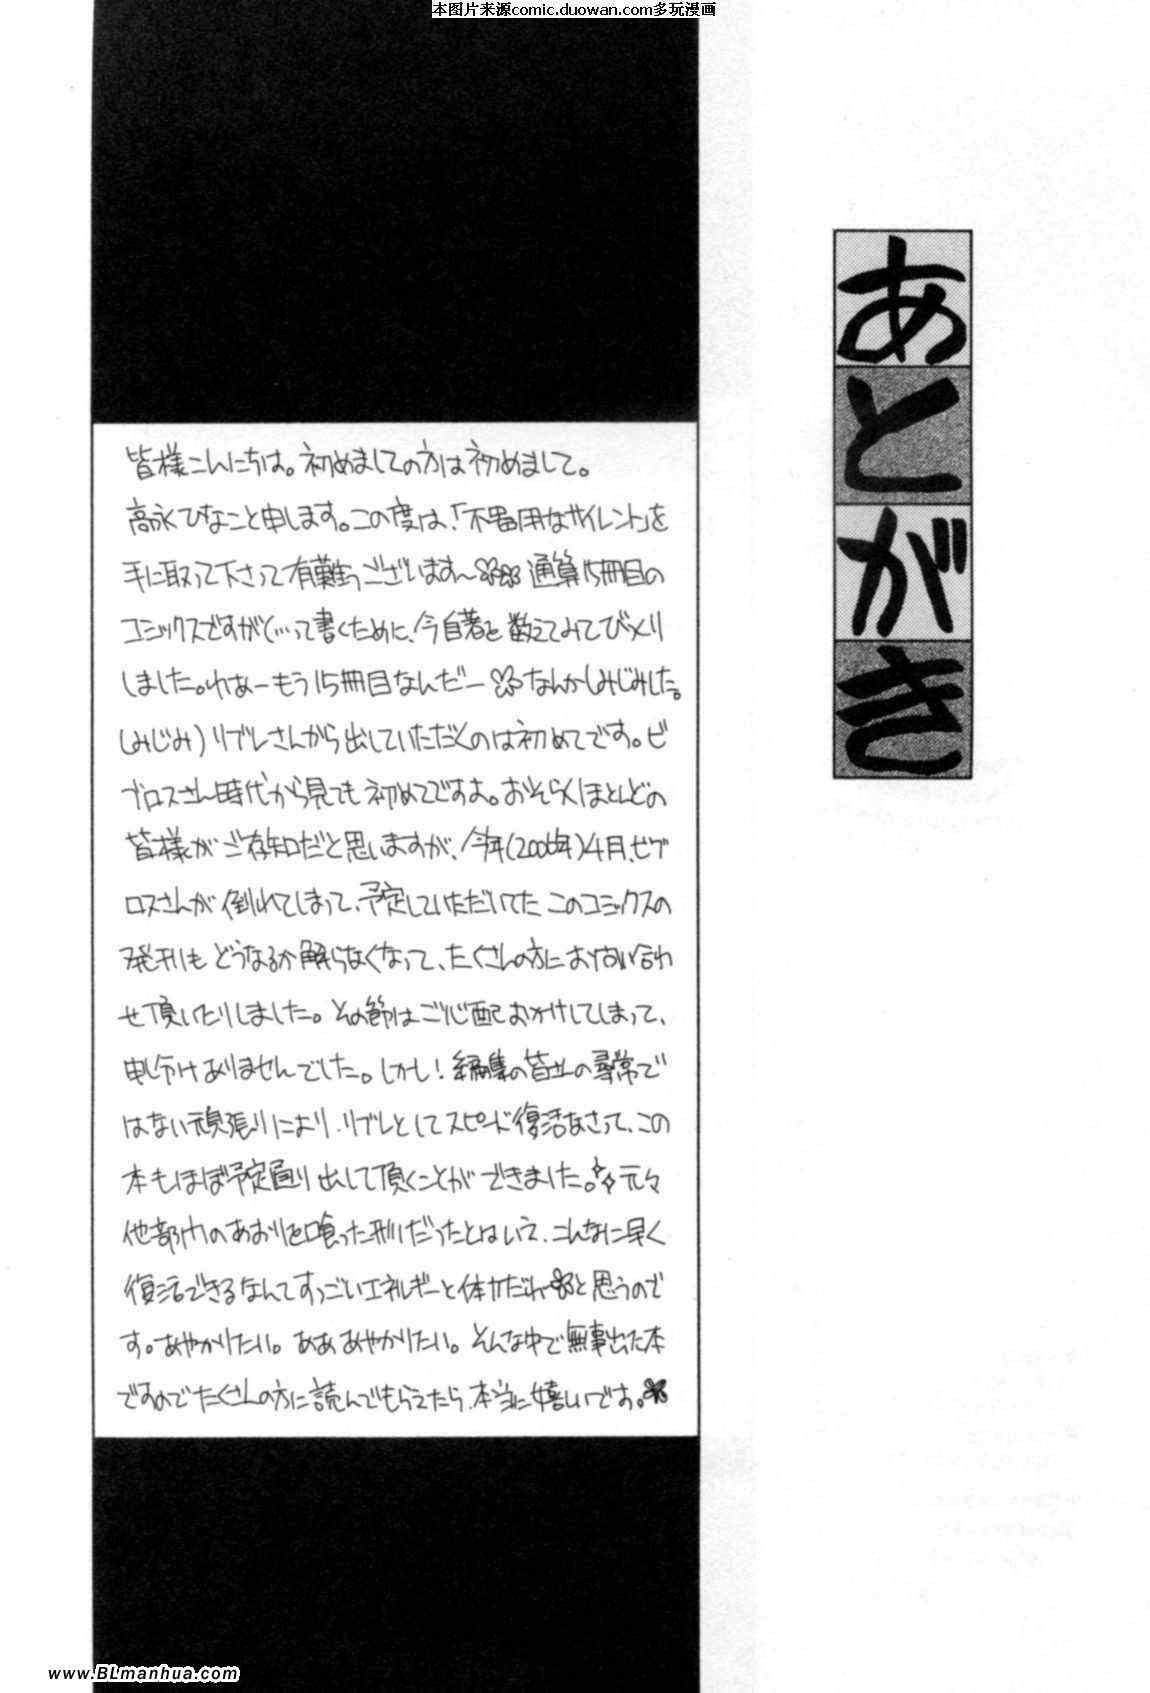 本图片来源comic.duowan.com多玩漫画
あとがき
皆様こんにちは。初めましての方は初めまして。
高永ひなこと申します。この度は、「不器用なサイレント」を
手に取って下さって有難うございます〜通算15冊目の
コミックスですが(…って書くために、今自著を数えてみてびっくり
しました。わあーもう15冊目なんだーなんかしみじみした。
しみじみ)リブレさんから出していただくのは初めてです。ビ
ブロスさん時代から見ても初めてですよ。おそらくほとんどの
皆様がご存知だと思いますが、今年(2006年)4月、ビブ
ロスさんが倒れてしまって、予定していただいてたこのコミックスの
発刊もどうなるか解らなくなって、たくさんの方にお問い合わ
せ頂いたりしました。その節はご心配おかけしてしまって、
申し分けありませんでした。しかし!編集の皆女の尋常で
はない頑張りにより、リブレとしてスピード復活なさって、この
本もほぼ予定通り出して頂くことができました。元々
他部門のあおりを喰った形だったとはいえ、こんなに早く
復活できるなんてすっごいエネルギーと体力だわと思うので
す。あやかりたい。ああああやかりたい。そんな中で無事出た本
ですのでたくさんの方に読んでもらえたら、本当に嬉しいです。
www.BLmanhua.com